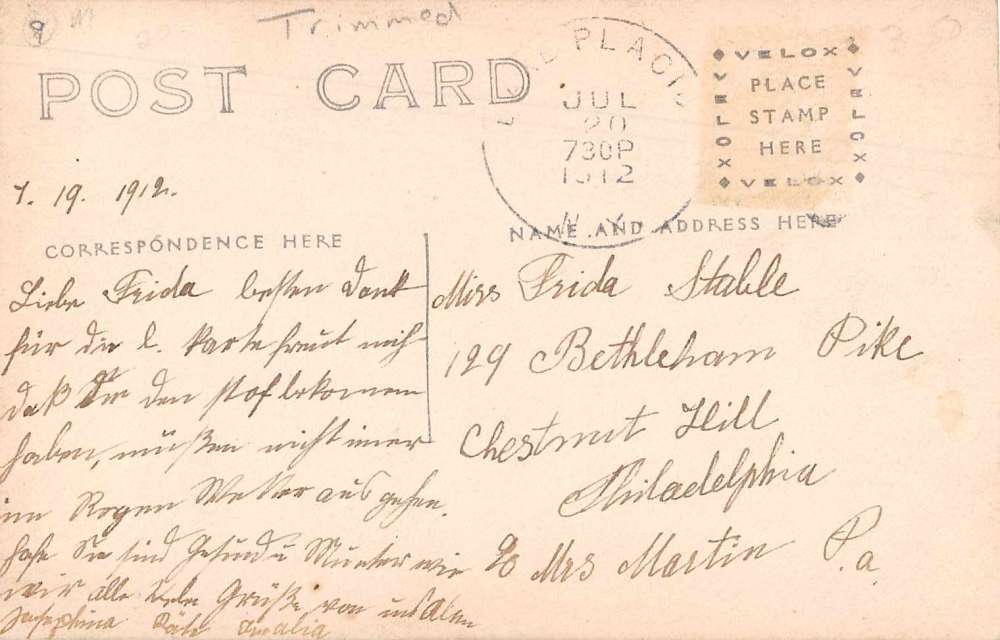 9
Trimmed
POST CARD
PLACE
JUL
20
730P
1912
N.Y.
VELOX
VELOX
PLACE
STAMP
HERE
VELOX
VELOX
7. 19. 1912.
CORRESPONDENCE HERE
NAME AND ADDRESS HERE
Liebe Frida besten Dank
für die l. Karte freut mich
daß Sie den Stof bekomen
haben, müßen nicht imer
im Regen Wetter aus gehen.
hofe Sie sind Gesund u Munter wie
wir alle viele Grüße von uns allen
Josephina Käte Amalia
Miss Frida Stahle
129 Bethleham Pike
Chestnut Hill
Philadelphia
Pa.
% Mrs Martin